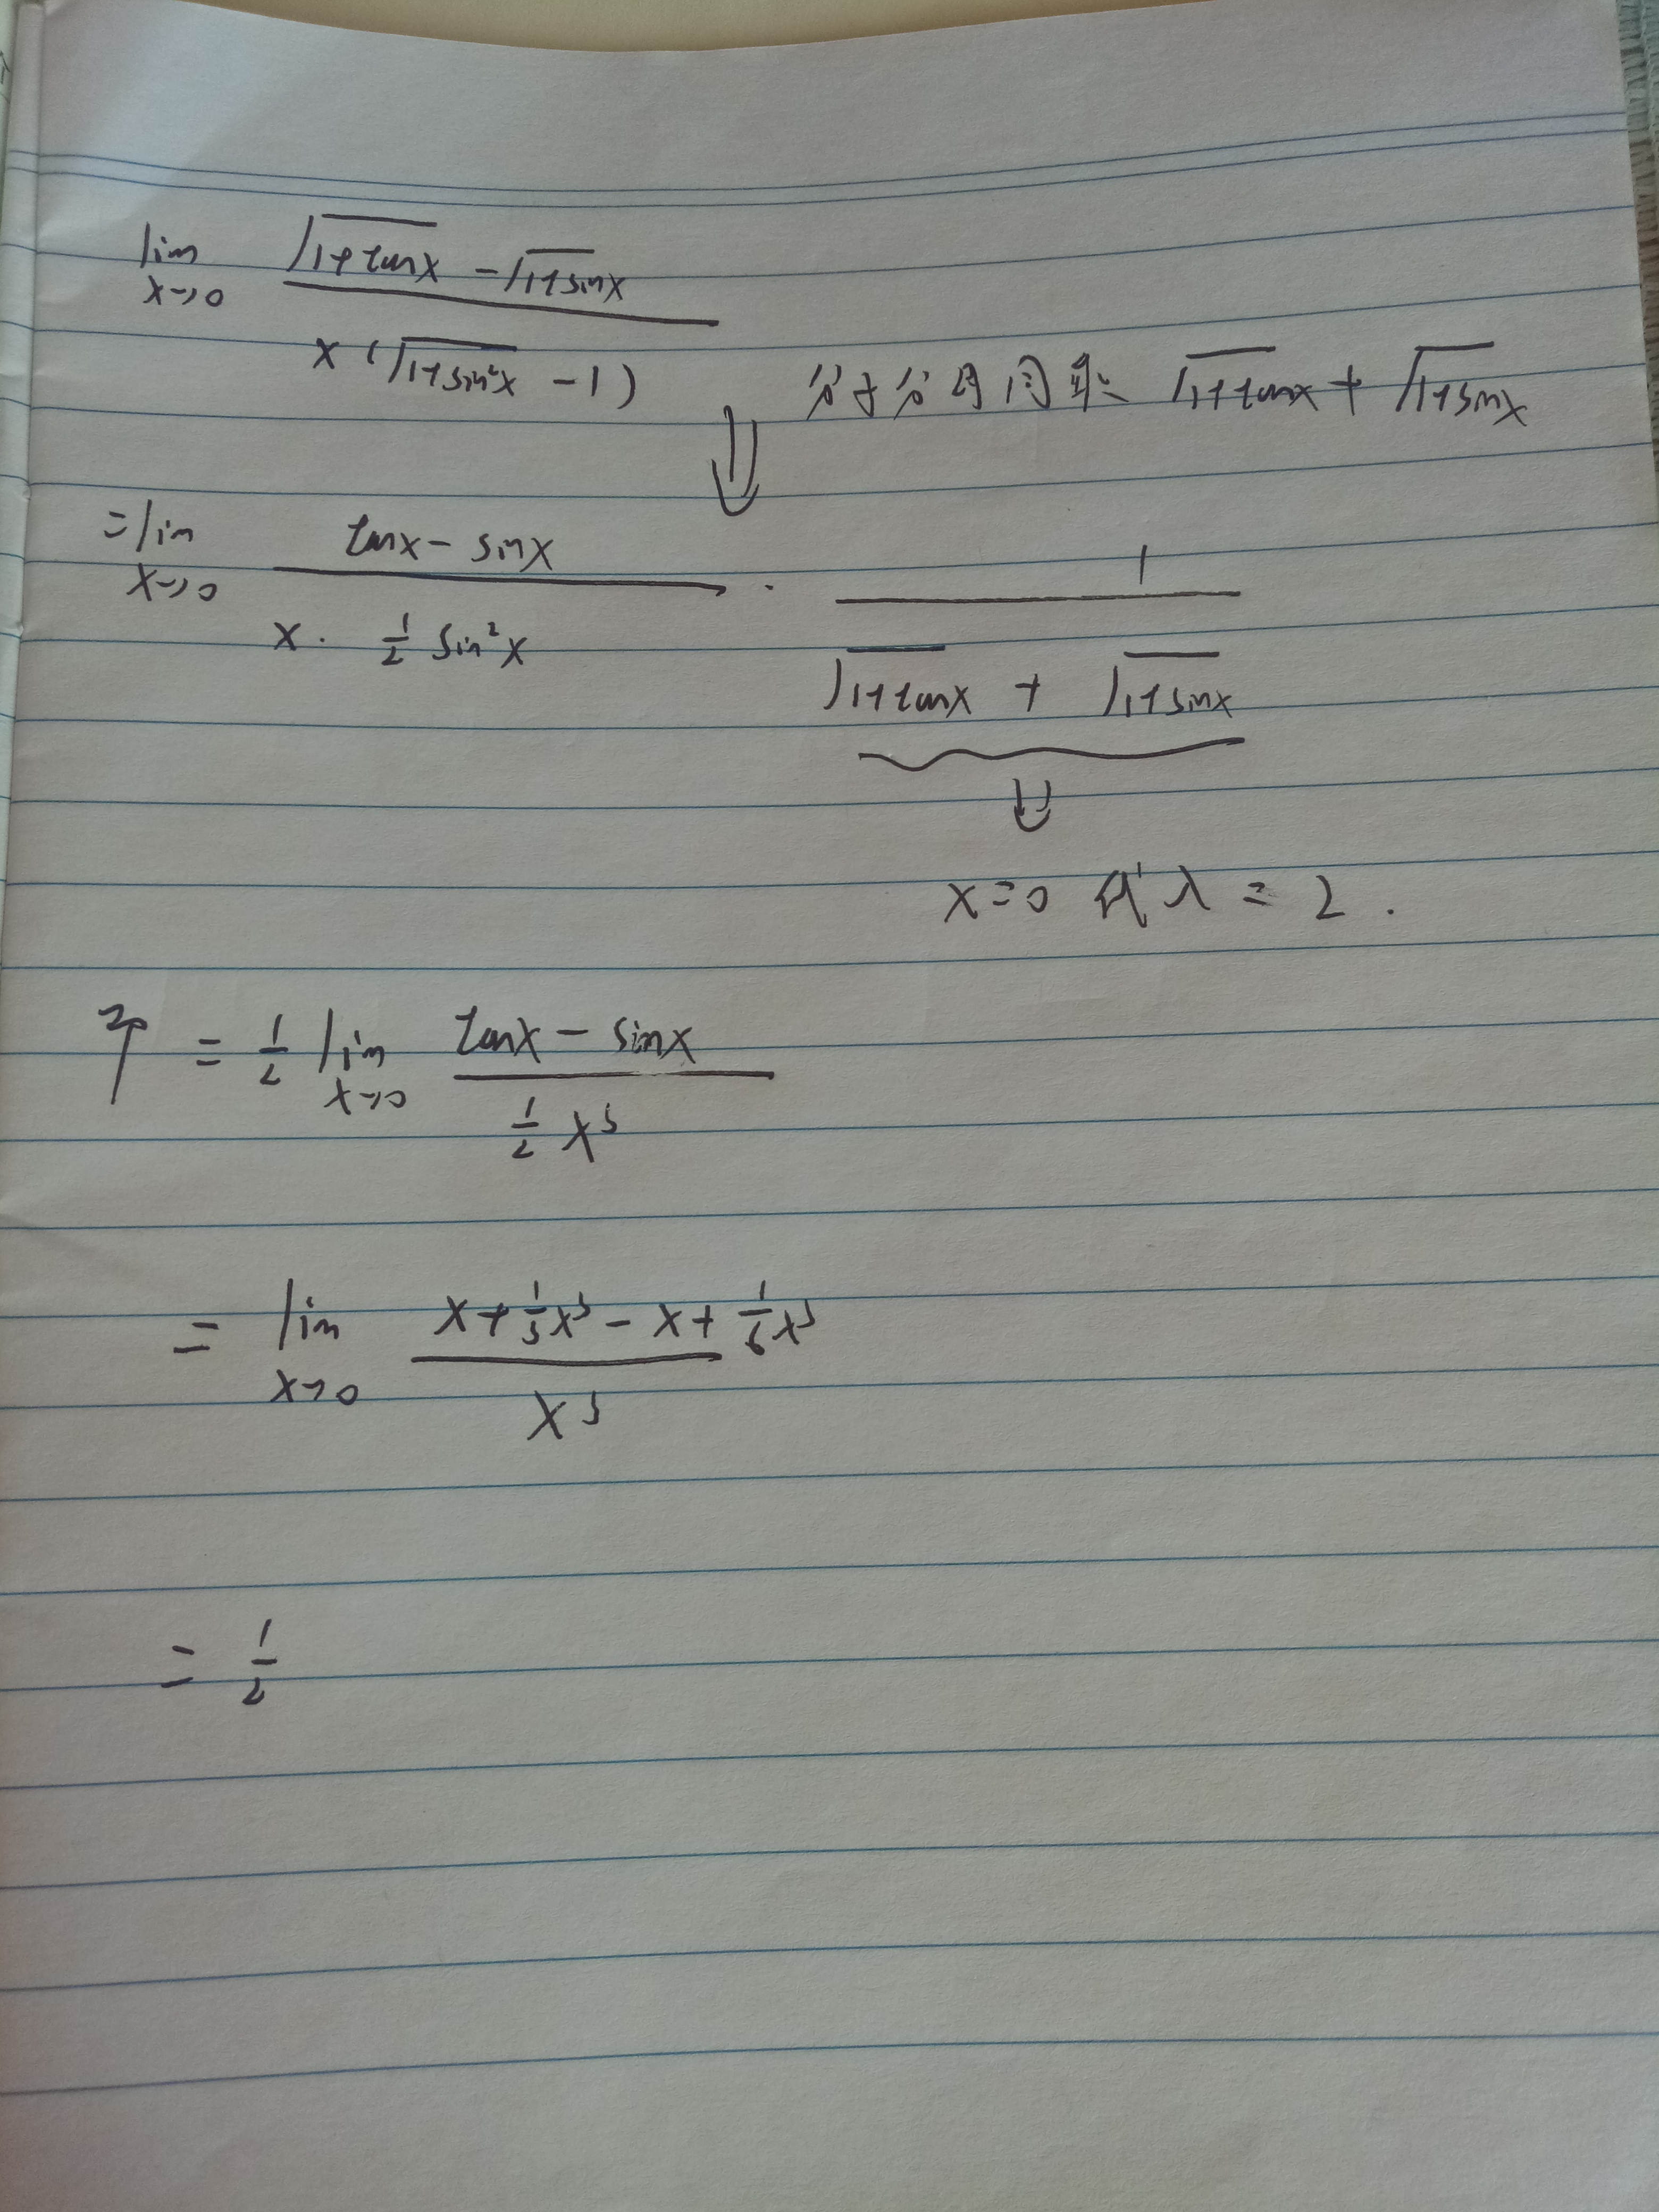 lim x→0 (√(1+tanx) - √(1+sinx)) / (x(√(1+sin²x) - 1))
分子分母同乘 √(1+tanx) + √(1+sinx)
⇓
= lim x→0 (tanx - sinx) / (x · 1/2 sin²x) · 1 / (√(1+tanx) + √(1+sinx))
⇓
x=0 代入 = 2.
= 1/2 lim x→0 (tanx - sinx) / (1/2 x³)
= lim x→0 (x + 1/3 x³ - x + 1/6 x³) / x³
= 1/2